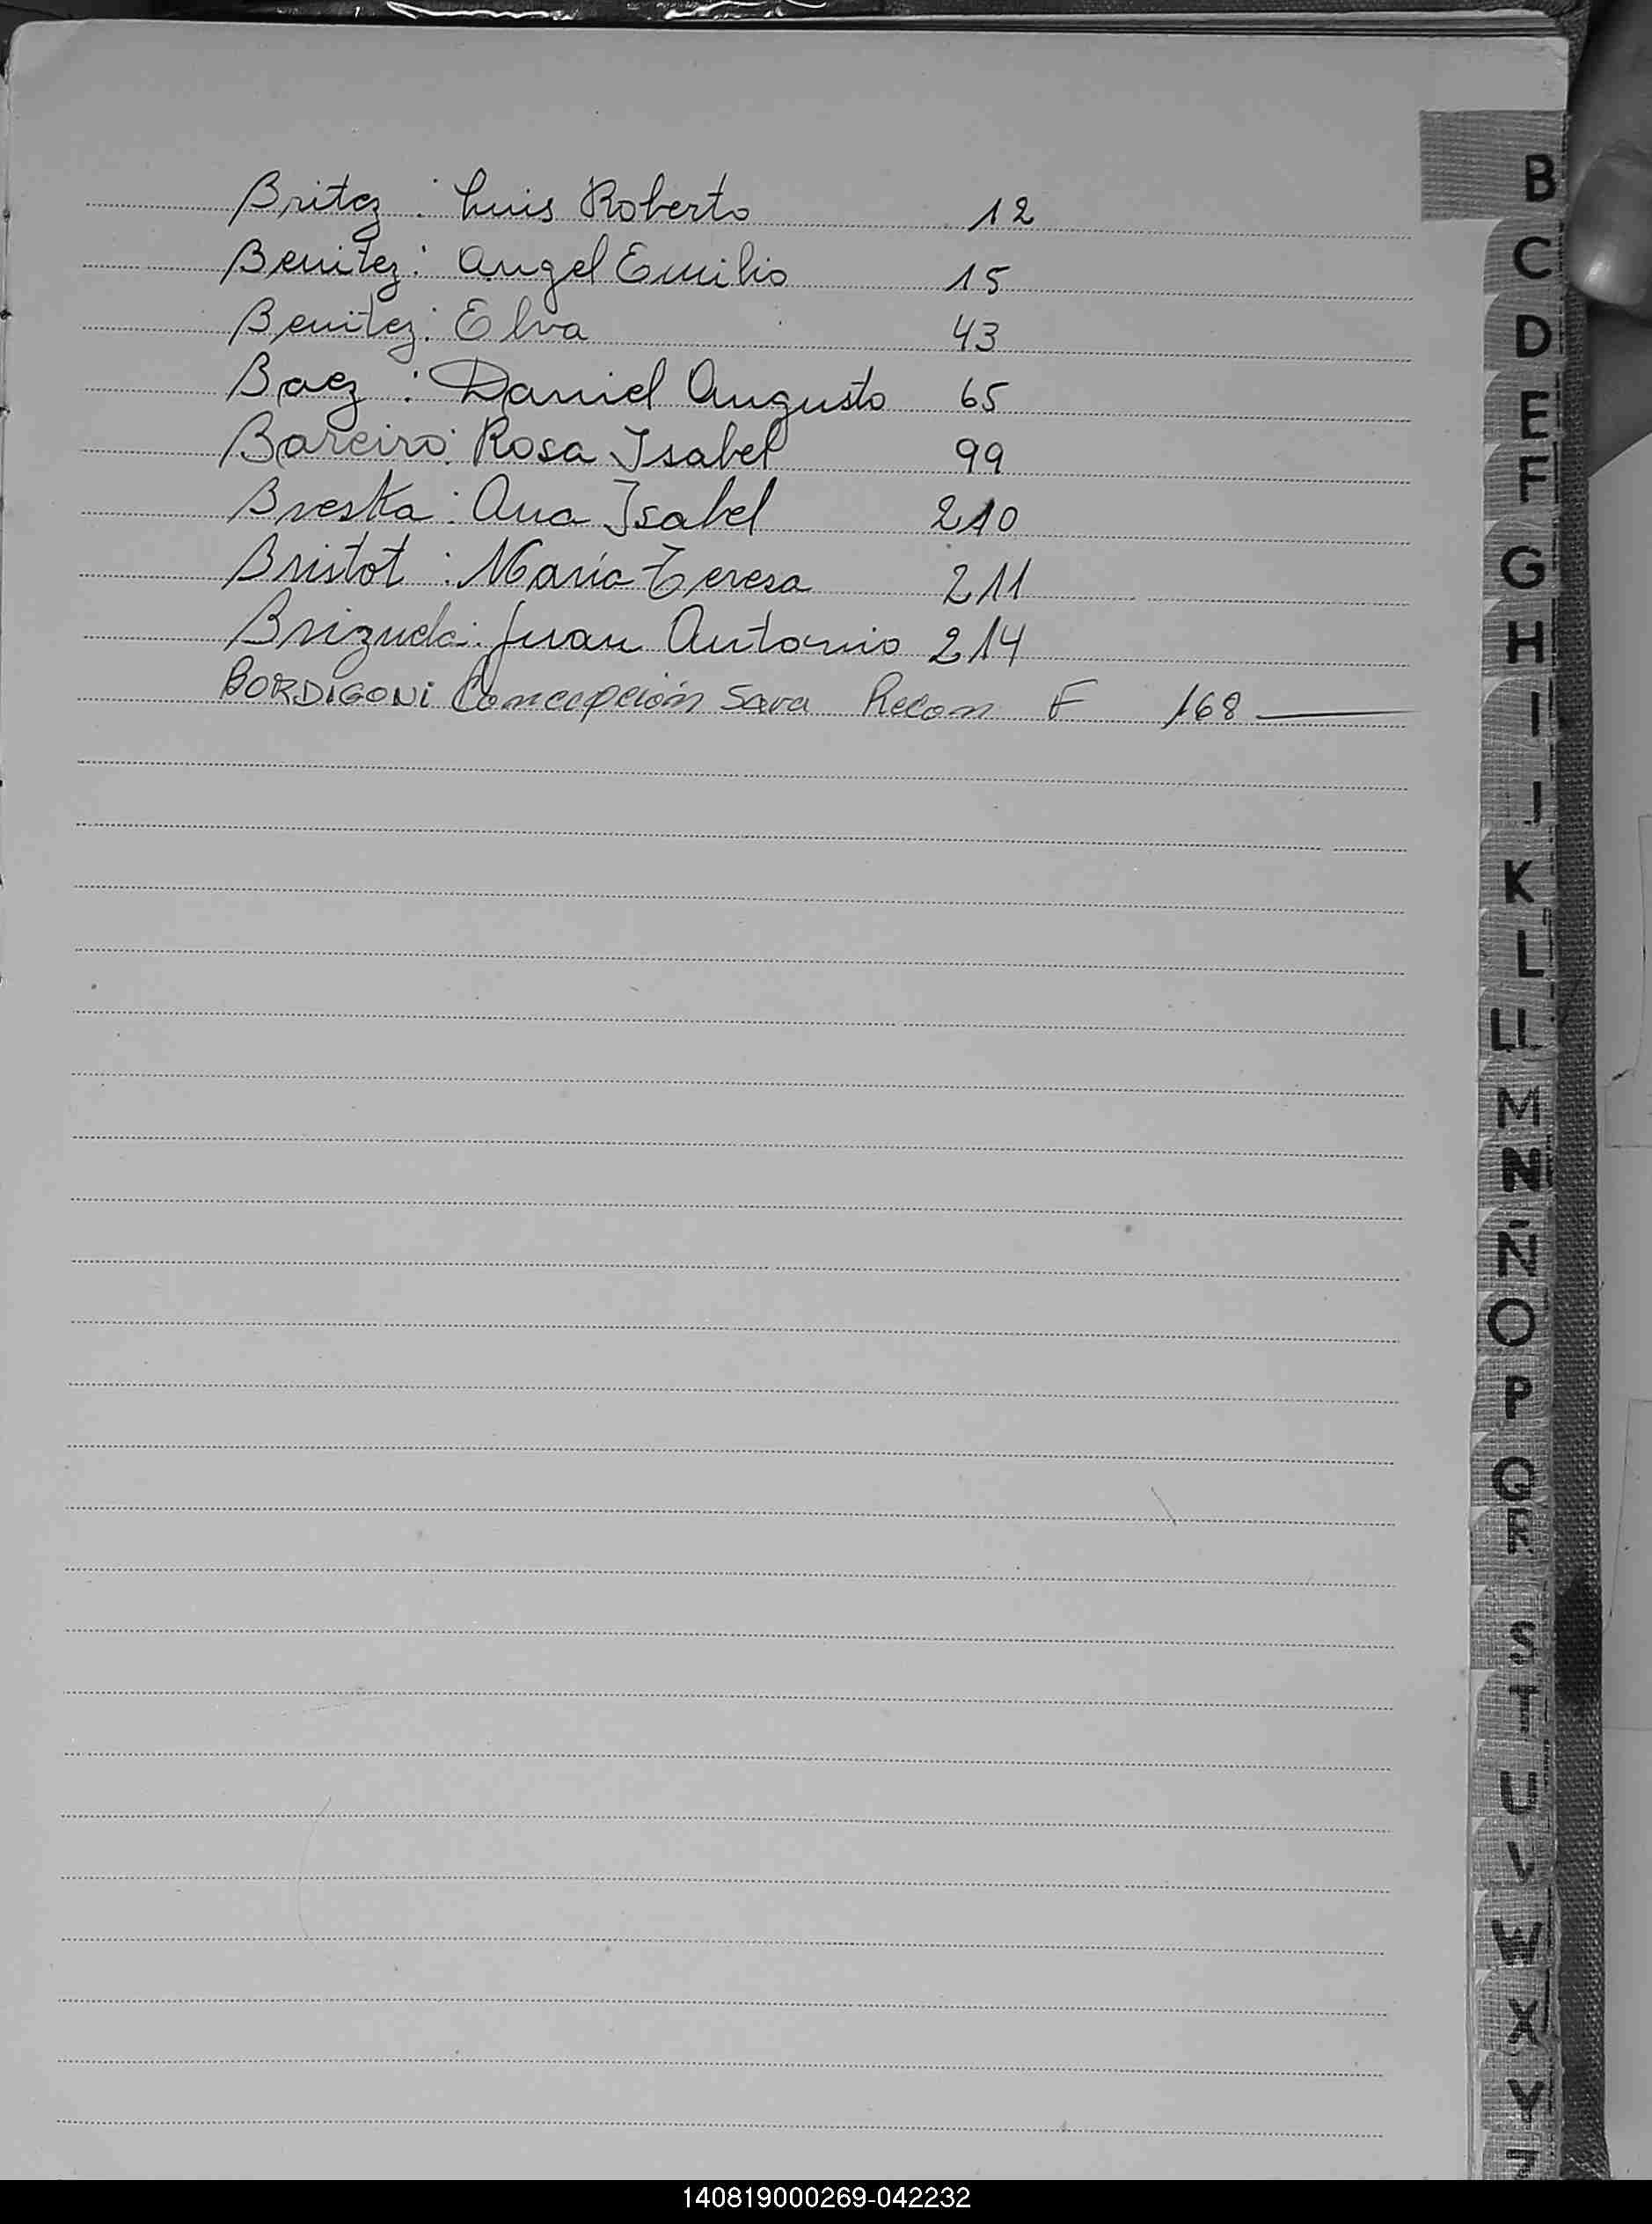 Britez : Luis Roberto 12
Benitez : Angel Emilio 15
Benitez : Elva 43
Baez : Daniel Augusto 65
Bareiro : Rosa Isabel 99
Breska : Ana Isabel 210
Bristot : María Teresa 211
Brizuela : Juan Antonio 214
BORDIGONI Concepción Sara Recon F 168
B
C
D
E
F
G
H
I
J
K
L
LL
M
N
Ñ
O
P
Q
R
S
T
U
V
W
X
Y
Z
140819000269-042232